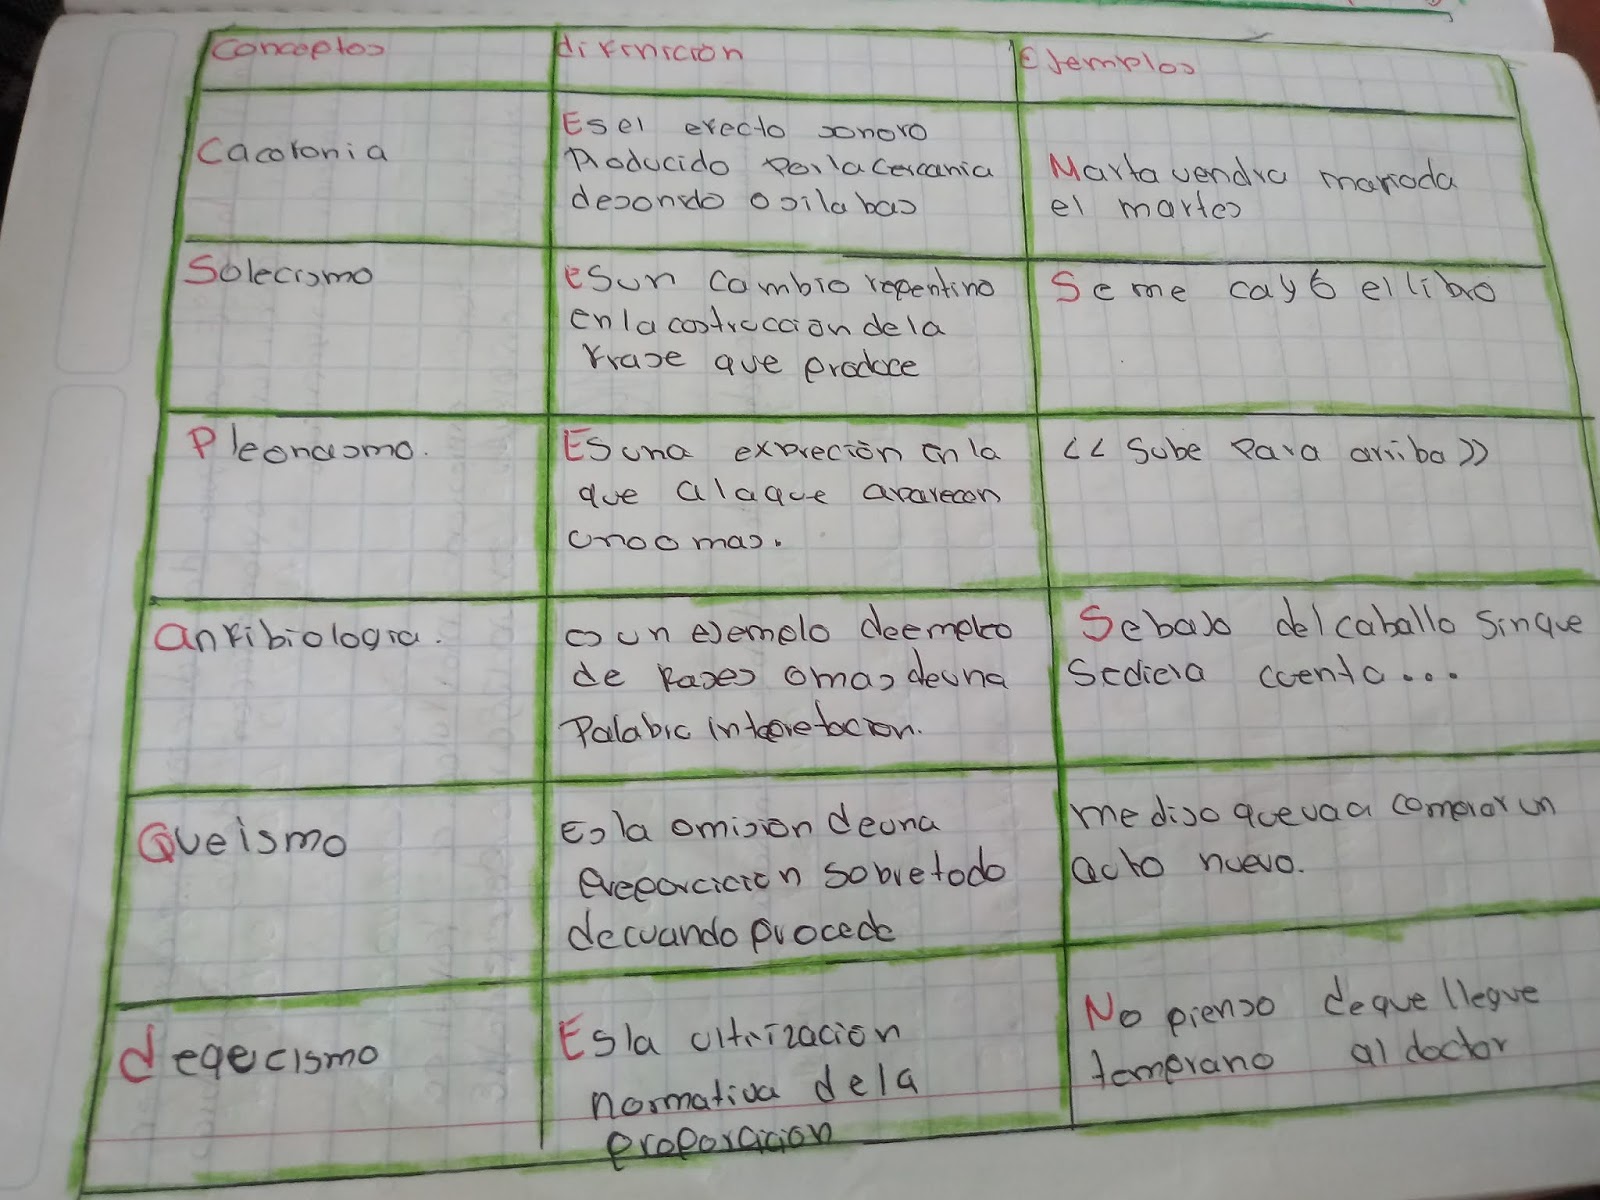 Conceptos
difinicion
Ejemplos
Cacofonia
Es el efecto sonoro
Producido por la cercania
desonido o silabas
Marta vendra
el martes
Solecismo
esun cambio repentino
en la costruccion de la
frase que produce
Se me cayó el libro
Pleonasmo.
Es una expreción en la
que a la que aparecen
uno o mas.
<< Sube para arriba >>
anfibiologia.
es un ejemplo de empleo
de frases o mas de una
Palabra interetacion.
Se bajo del caballo sin que
se diera cuenta...
Queismo
Es la omision de una
preporcicion sobre todo
de cuando procede
me dijo que va a comprar un
auto nuevo.
deqecismo
Es la
normativa de la
proporacion
No pienso de que llegue
temprano al doctor